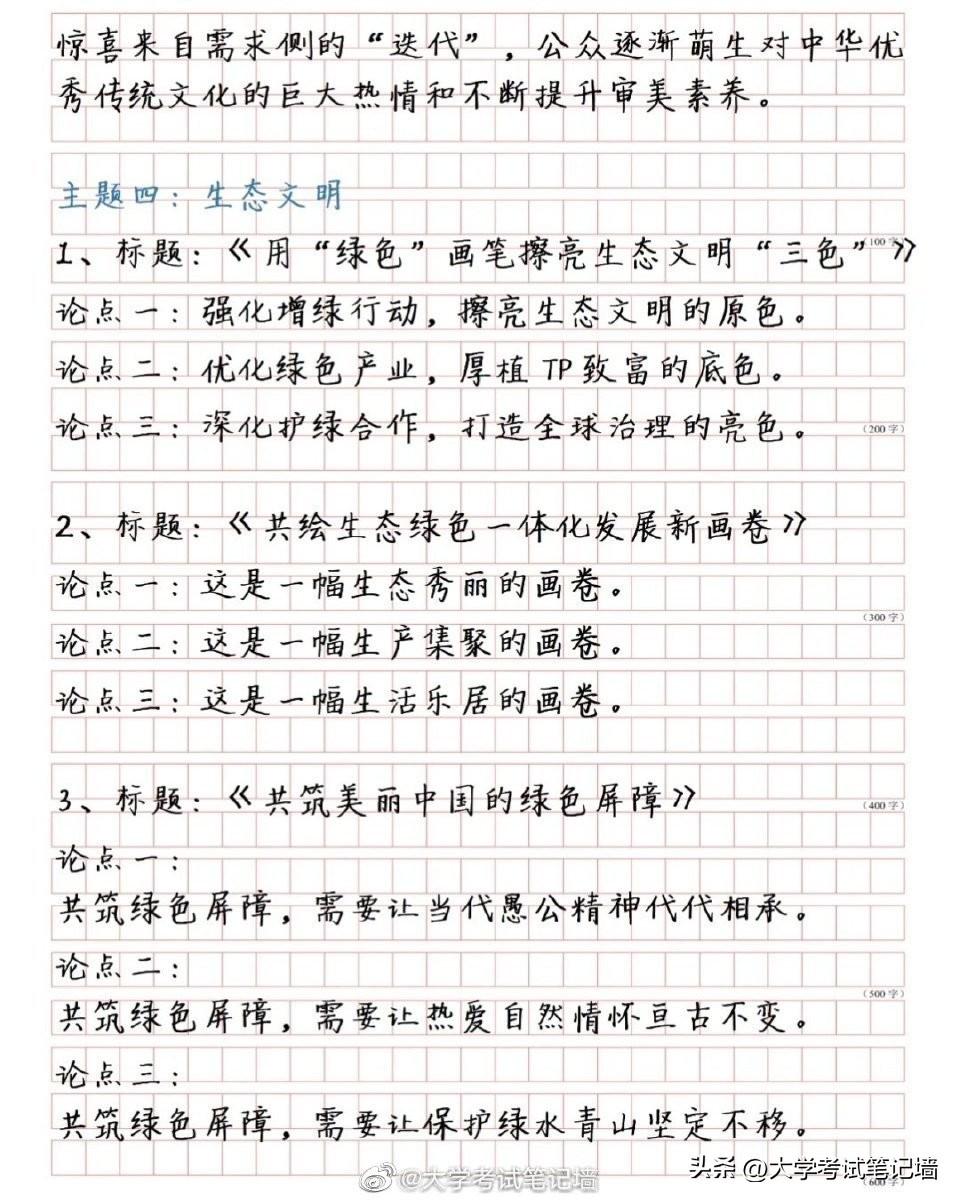 惊喜来自需求侧的“迭代”，公众逐渐萌生对中华优
秀传统文化的巨大热情和不断提升审美素养。
主题四：生态文明
1、标题：《用“绿色”画笔擦亮生态文明“三色”》
（100 字）
论点一：强化增绿行动，擦亮生态文明的原色。
论点二：优化绿色产业，厚植 TP致富的底色。
论点三：深化护绿合作，打造全球治理的亮色。
（200 字）
2、标题：《共绘生态绿色一体化发展新画卷》
论点一：这是一幅生态秀丽的画卷。
（300 字）
论点二：这是一幅生产集聚的画卷。
论点三：这是一幅生活乐居的画卷。
3、标题：《共筑美丽中国的绿色屏障》
（400 字）
论点一：
共筑绿色屏障，需要让当代愚公精神代代相承。
论点二：
（500 字）
共筑绿色屏障，需要让热爱自然情怀亘古不变。
论点三：
共筑绿色屏障，需要让保护绿水青山坚定不移。
@大学考试笔记墙
头条 @大学考试笔记墙
（600 字）